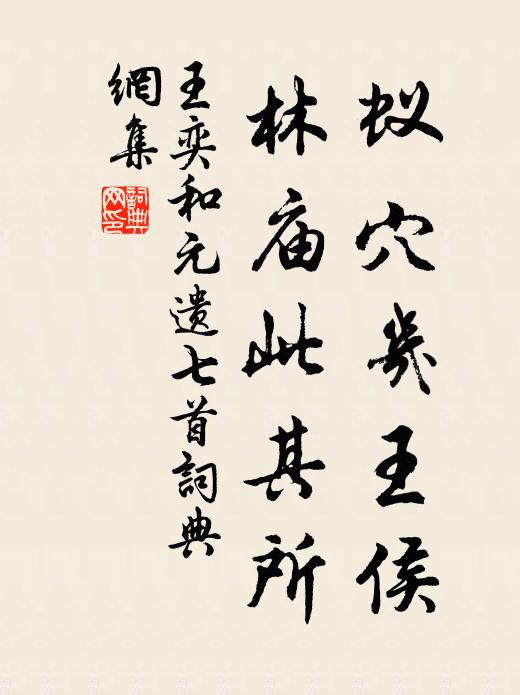 蚁穴几王侯
林庙此其所
王奕和元遗七首詞典
網集
詞典
网印